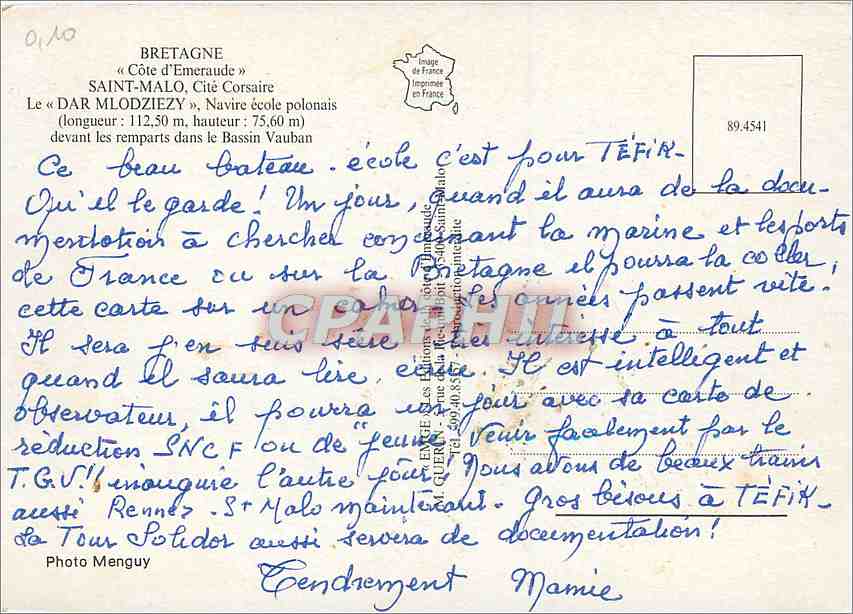 0,10
BRETAGNE
« Côte d'Emeraude »
SAINT-MALO, Cité Corsaire
Le « DAR MLODZIEZY », Navire école polonais
(longueur : 112,50 m, hauteur : 75,60 m)
devant les remparts dans le Bassin Vauban
Image
de France
Imprimée
en France
89.4541
Ce beau bateau-école c'est pour TÉFiK-
Qu'il le garde! Un jour, quand il aura de la docu-
mentation à chercher concernant la marine et les ports
de France ou sur la Bretagne il pourra la coller,
cette carte sur un cahier. Les années passent vite!
Il sera j'en suis sûre très intéressé à tout
quand il saura lire, écrire. Il est intelligent et
observateur, il pourra un jour avec sa carte de
réduction SNCF ou de "jeune" venir facilement par le
T.G.V!! inauguré l'autre jour! Nous avons de beaux trains
aussi Rennes-St Malo maintenant. Gros bisous à TÉFiK-
La Tour Solidor aussi servira de documentation!
Tendrement Mamie
Photo Menguy
Les Editions de la côte d'Emeraude
M. GUERIN
Reproduction interdite
CPAPHIL